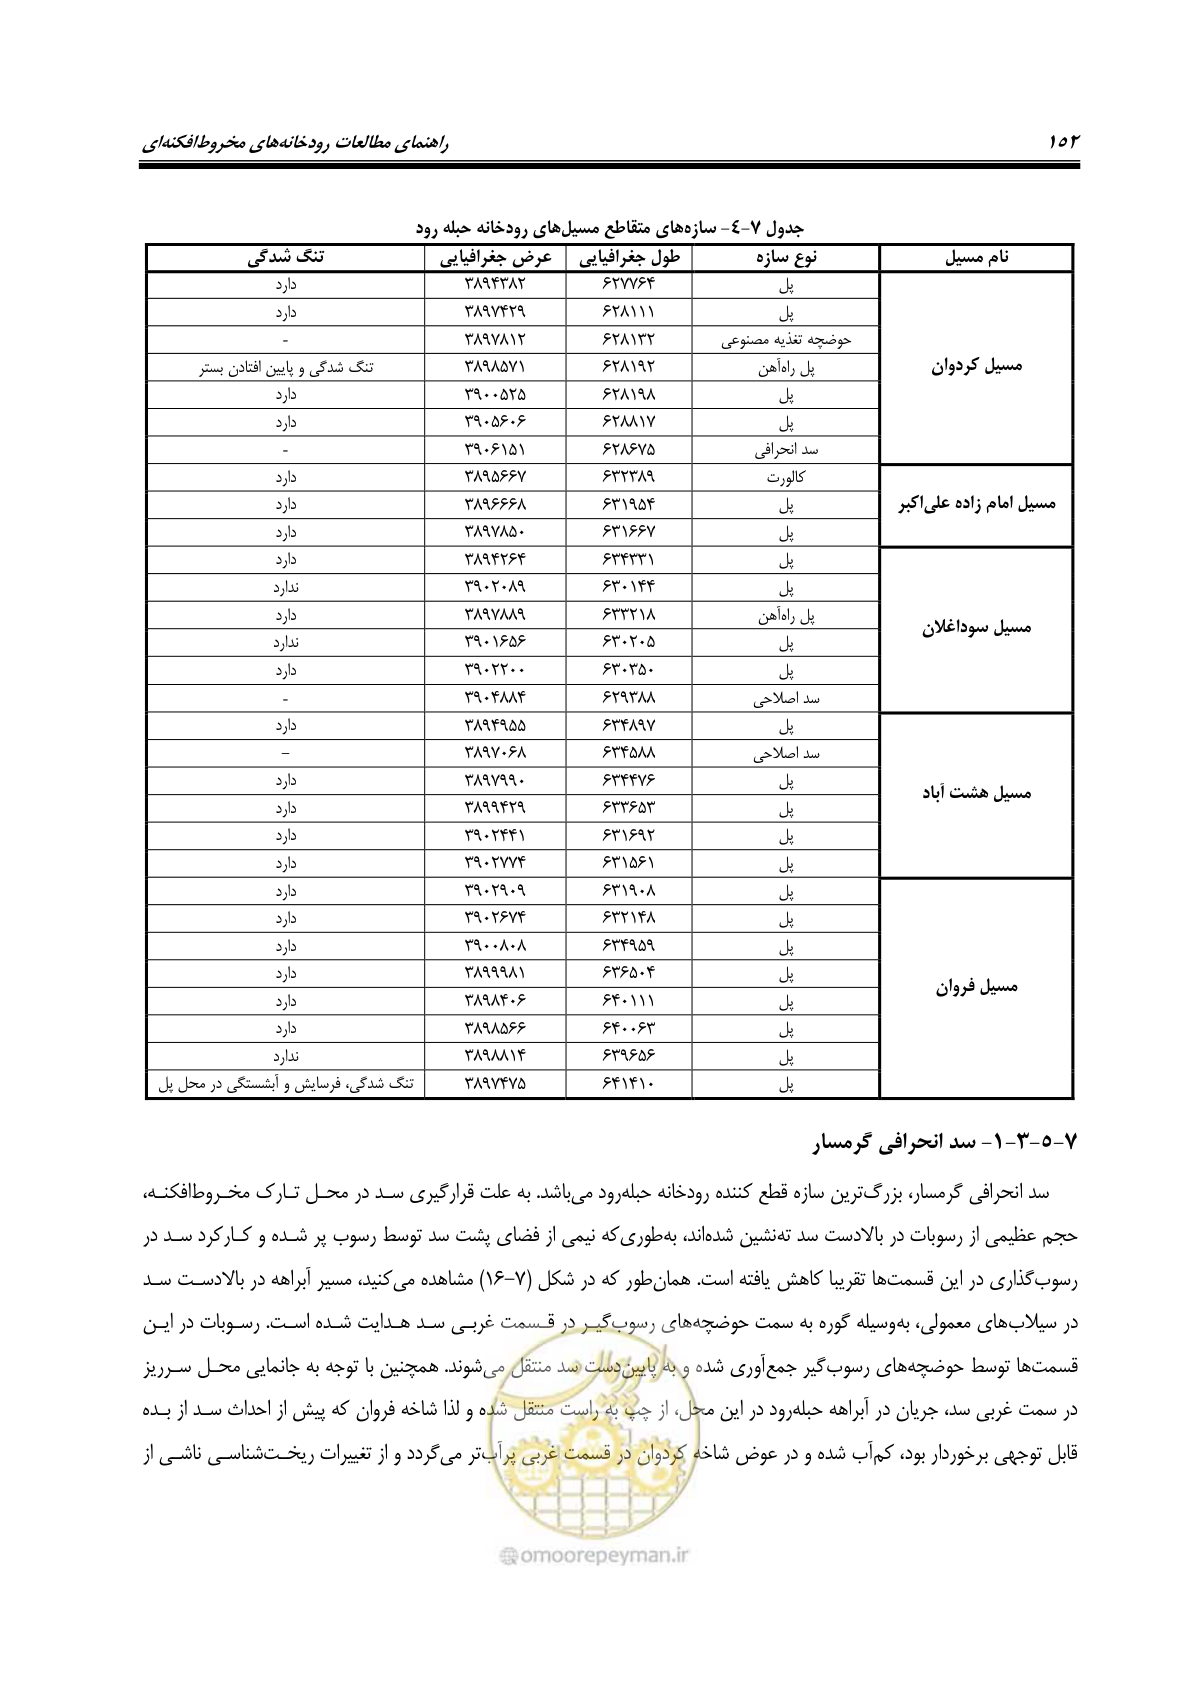 ۱۵۲ راهنمای مطالعات رودخانه‌های مخروط‌افکنه‌ای
جدول ۷-۴- سازه‌های متقاطع مسیل‌های رودخانه حبله رود
نام مسیل نوع سازه طول جغرافیایی عرض جغرافیایی تنگ شدگی
پل ۶۲۷۷۶۴ ۳۸۹۴۳۸۲ دارد
پل ۶۲۸۱۱۱ ۳۸۹۷۴۲۹ دارد
حوضچه تغذیه مصنوعی ۶۲۸۱۳۲ ۳۸۹۷۸۱۲ -
مسیل کردوان پل راه‌آهن ۶۲۸۱۹۲ ۳۸۹۸۵۷۱ تنگ شدگی و پایین افتادن بستر
پل ۶۲۸۱۹۸ ۳۹۰۰۵۲۵ دارد
پل ۶۲۸۸۱۷ ۳۹۰۵۶۰۶ دارد
سد انحرافی ۶۲۸۶۷۵ ۳۹۰۶۱۵۱ -
کالورت ۶۳۲۳۸۹ ۳۸۹۵۶۶۷ دارد
مسیل امام زاده علی‌اکبر پل ۶۳۱۹۵۴ ۳۸۹۶۶۶۸ دارد
پل ۶۳۱۶۶۷ ۳۸۹۷۸۵۰ دارد
پل ۶۳۴۳۳۱ ۳۸۹۴۲۶۴ دارد
پل ۶۳۰۱۴۴ ۳۹۰۲۰۸۹ ندارد
پل راه‌آهن ۶۳۳۲۱۸ ۳۸۹۷۸۸۹ دارد
مسیل سوداغلان پل ۶۳۰۲۰۵ ۳۹۰۱۶۵۶ ندارد
پل ۶۳۰۳۵۰ ۳۹۰۲۲۰۰ دارد
سد اصلاحی ۶۲۹۳۸۸ ۳۹۰۴۸۸۴ -
پل ۶۳۴۸۹۷ ۳۸۹۴۹۵۵ دارد
سد اصلاحی ۶۳۴۵۸۸ ۳۸۹۷۰۶۸ –
مسیل هشت آباد پل ۶۳۴۴۷۶ ۳۸۹۷۹۹۰ دارد
پل ۶۳۳۶۵۳ ۳۸۹۹۴۲۹ دارد
پل ۶۳۱۶۹۲ ۳۹۰۲۴۴۱ دارد
پل ۶۳۱۵۶۱ ۳۹۰۲۷۷۴ دارد
پل ۶۳۱۹۰۸ ۳۹۰۲۹۰۹ دارد
پل ۶۳۲۱۴۸ ۳۹۰۲۶۷۴ دارد
پل ۶۳۴۹۵۹ ۳۹۰۰۸۰۸ دارد
مسیل فروان پل ۶۳۶۵۰۴ ۳۸۹۹۹۸۱ دارد
پل ۶۴۰۱۱۱ ۳۸۹۸۴۰۶ دارد
پل ۶۴۰۰۶۳ ۳۸۹۸۵۶۶ دارد
پل ۶۳۹۶۵۶ ۳۸۹۸۸۱۴ ندارد
پل ۶۴۱۴۱۰ ۳۸۹۷۴۷۵ تنگ شدگی، فرسایش و آبشستگی در محل پل
۷-۵-۳-۱- سد انحرافی گرمسار
سد انحرافی گرمسار، بزرگ‌ترین سازه قطع کننده رودخانه حبله‌رود می‌باشد. به علت قرارگیری سد در محل تارک مخروط‌افکنه،
حجم عظیمی از رسوبات در بالادست سد ته‌نشین شده‌اند، به‌طوری‌که نیمی از فضای پشت سد توسط رسوب پر شده و کارکرد سد در
رسوب‌گذاری در این قسمت‌ها تقریبا کاهش یافته است. همان‌طور که در شکل (۷-۱۶) مشاهده می‌کنید، مسیر آبراهه در بالادست سد
در سیلاب‌های معمولی، به‌وسیله گوره به سمت حوضچه‌های رسوب‌گیر در قسمت غربی سد هدایت شده است. رسوبات در این
قسمت‌ها توسط حوضچه‌های رسوب‌گیر جمع‌آوری شده و به پایین‌دست سد منتقل می‌شوند. همچنین با توجه به جانمایی محل سرریز
در سمت غربی سد، جریان در آبراهه حبله‌رود در این محل، از چپ به راست منتقل شده و لذا شاخه فروان که پیش از احداث سد از بده
قابل توجهی برخوردار بود، کم‌آب شده و در عوض شاخه کردوان در قسمت غربی پرآب‌تر می‌گردد و از تغییرات ریخت‌شناسی ناشی از
@omoorepeyman.ir